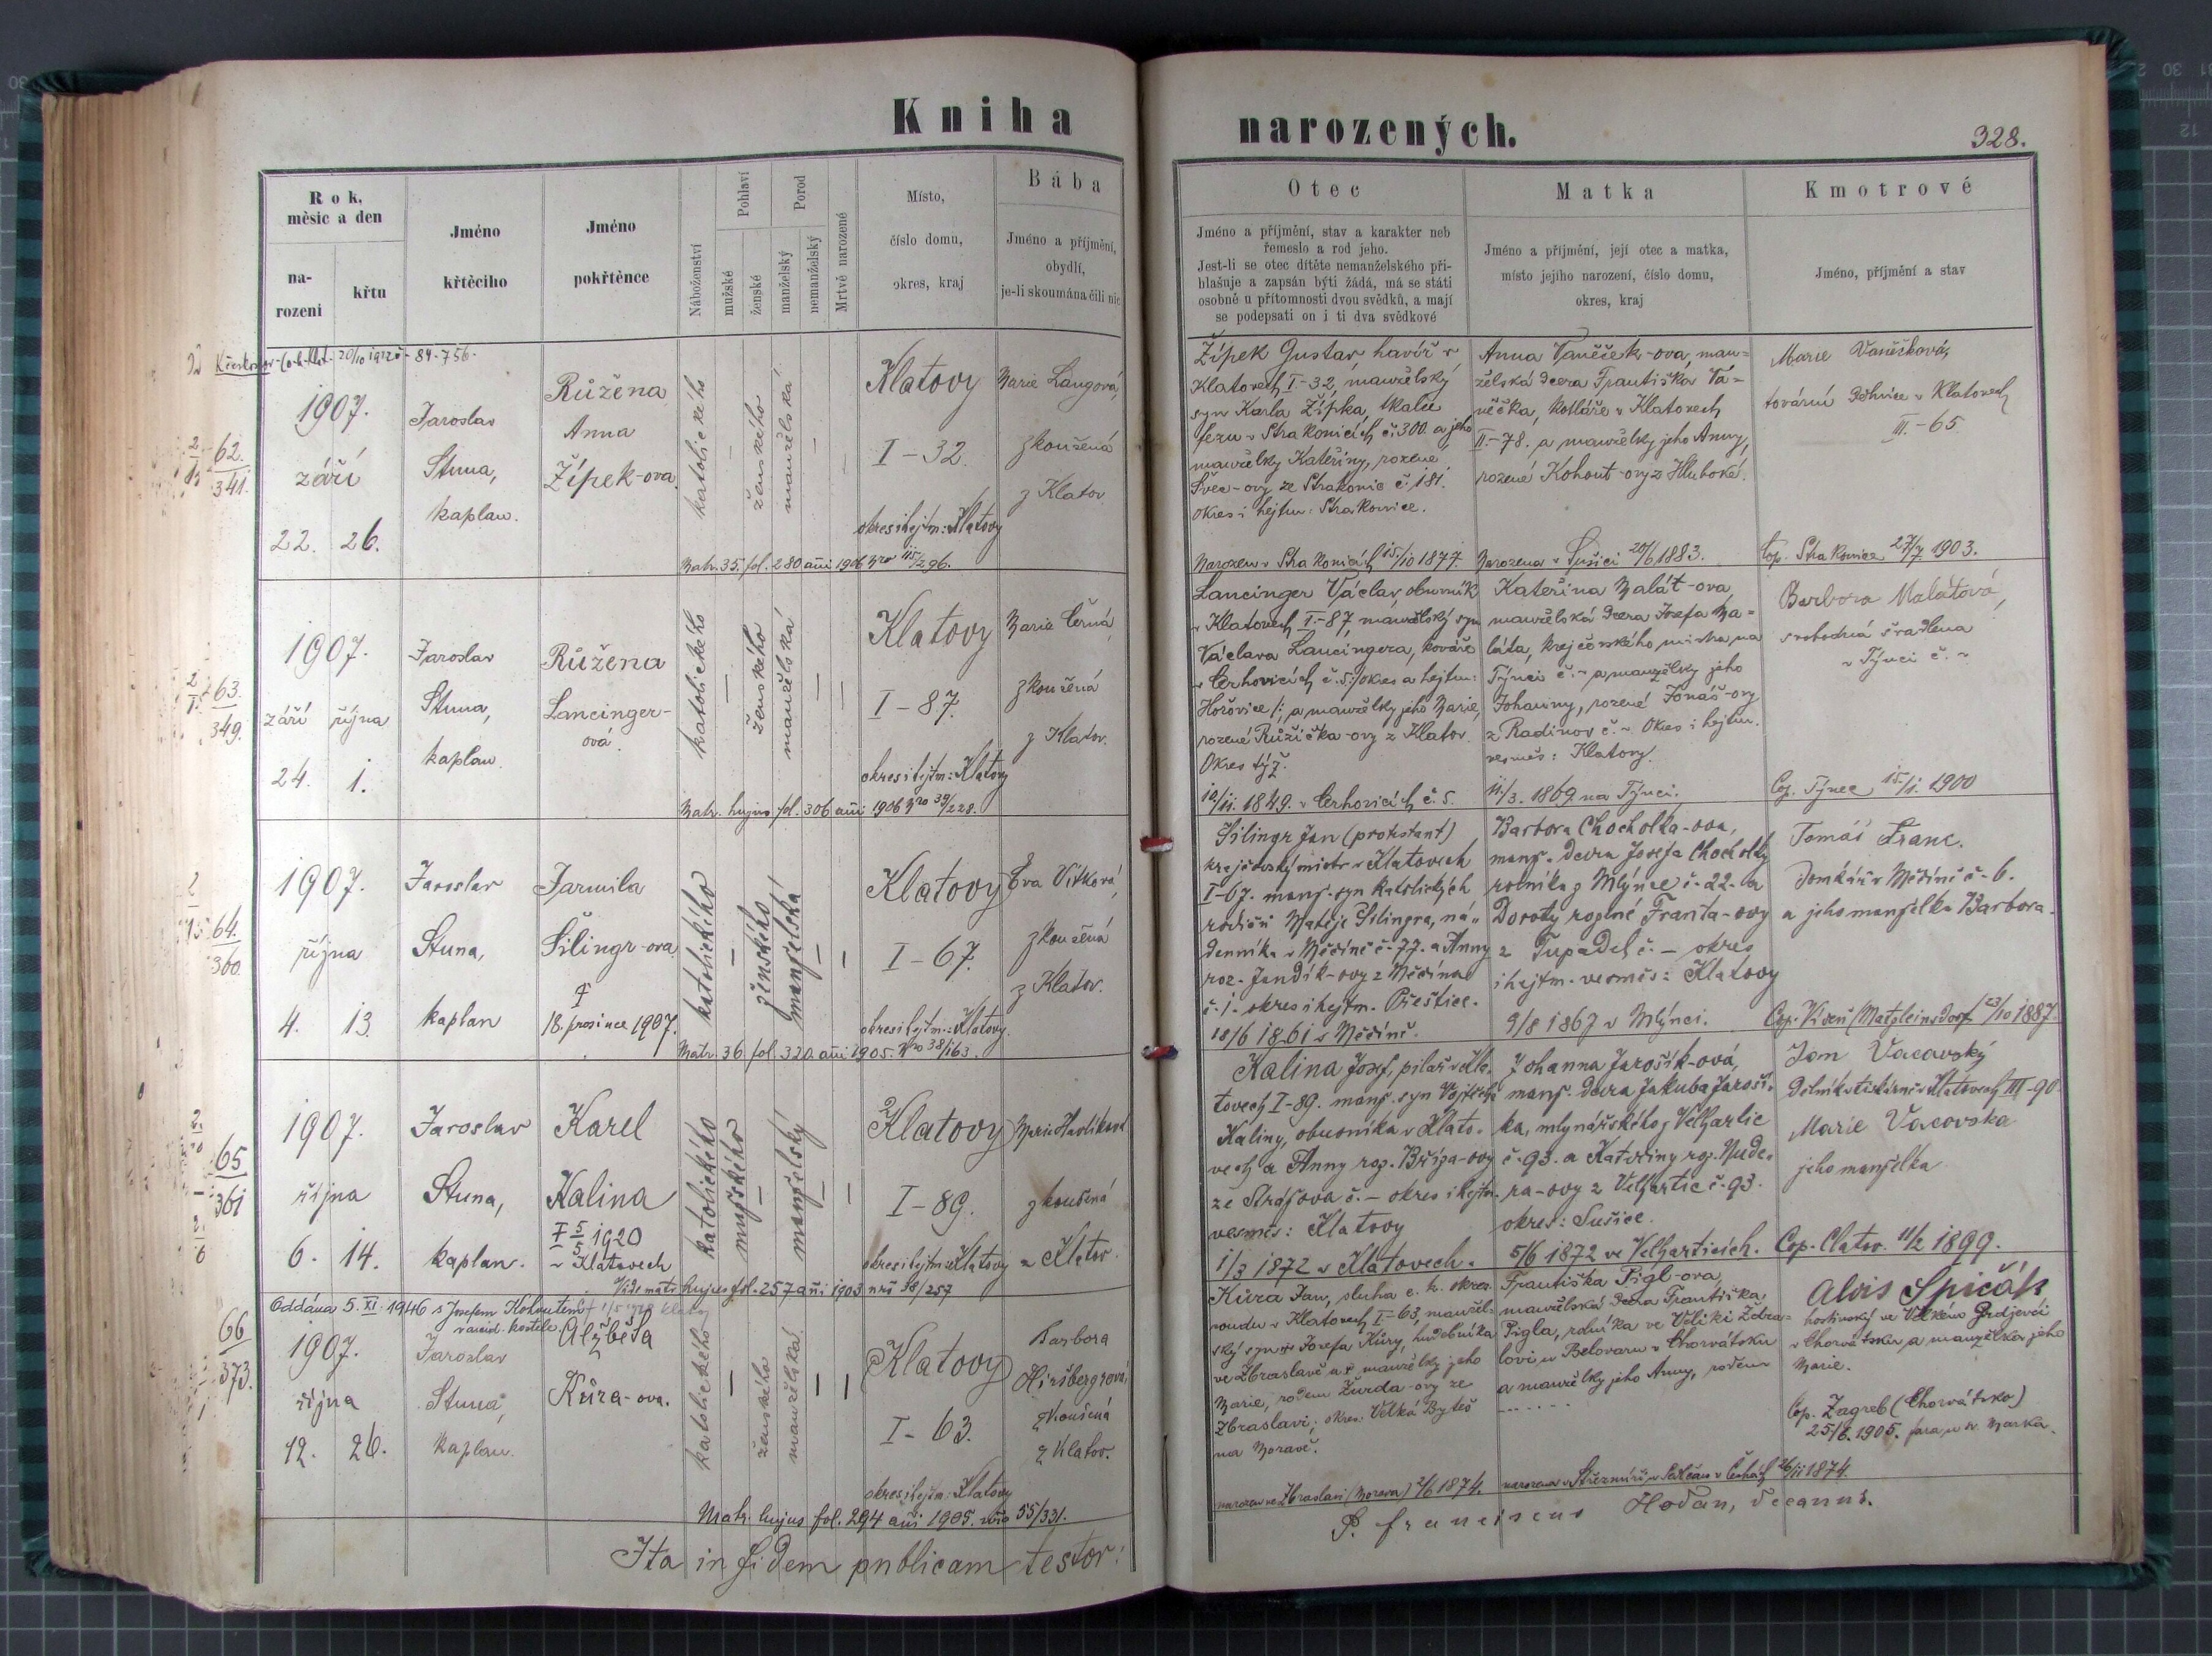 Kniha narozených.
328.
Rok, měsíc a den
na-
rozeni
křtu
Jméno
křtěcího
Jméno
pokřtěnce
Náboženství
Pohlaví
mužské
ženské
Porod
manželský
nemanželský
Mrtvě narozené
Místo,
číslo domu,
okres, kraj
Bába
Jméno a příjmění,
obydlí,
je-li skoumána čili nic
Otec
Jméno a příjmění, stav a karakter neb
řemeslo a rod jeho.
Jest-li se otec dítěte nemanželského při-
hlašuje a zapsán býti žádá, má se státi
osobně u přítomnosti dvou svědků, a mají
se podepsati on i ti dva svědkové
Matka
Jméno a příjmění, její otec a matka,
místo jejího narození, číslo domu,
okres, kraj
Kmotrové
Jméno, příjmění a stav
62.
341.
1907.
září
22. 26.
Jaroslav
Stuna,
kaplan.
Růžena
Anna
Žípek-ova.
katolického
ženského
manželská
Klatovy
I-32.
okres i hejtm: Klatovy
Marie Langová,
zkoušená
z Klatov
Matr. 35. fol. 280 ani 1906 Nro 115/296.
Žípek Gustav havíř v
Klatovech I-32, manželský
syn Karla Žípka, tkalce
fezu v Strakonicích č. 300. a jeho
manželky Kateřiny, rozené
Švec-ovy ze Strakonic č. 181.
okres i hejtm: Strakonice.
Narozen v Strakonicích 15/10 1877.
Anna Vaněček-ova, man=
želská dcera Františka Va=
něčka, kotláře v Klatovech
II.-78. a manželky jeho Anny,
rozené Kohout-ovy z Hluboké.
Narozena v Sušici 20/6 1883.
Marie Vaněčková,
tovární dělnice v Klatovech
III.-65.
Cop. Strakonice 27/7 1903.
63.
349.
1907.
září října
24. 1.
Jaroslav
Stuna,
kaplan.
Růžena
Lancinger-
ová.
katolického
ženského
manželská
Klatovy
I-87.
okres i hejtm: Klatovy
Marie Černá,
zkoušená
z Klatov.
Matr. hujus fol. 306 ani 1906 Nro 39/228.
Lancinger Václav obuvník
v Klatovech I.-87, manželský syn
Václava Lancingera, kováře
v Cerhovicích č. 5. /: okres a hejtm:
Hořovice :/, a manželky jeho Marie,
rozené Růžička-ovy z Klatov.
Okres týž.
10/11. 1849. v Cerhovicích č. 5.
Kateřina Malát-ova,
manželská dcera Josefa Ma=
láta, krejčovského mistra na
Týnci č. ~ a manželky jeho
Johanny, rozené Jonáš-ovy
z Radinov č. ~ Okres i hejtm.
vesměs: Klatovy.
11/3. 1869 na Týnci.
Barbora Malátová,
svobodná švadlena
v Týnci č. ~
Cop. Týnec 15/1. 1900
64.
360.
1907.
října
4. 13.
Jaroslav
Stuna,
kaplan
Jarmila
Šilingr-ova
† 18. prosince 1907.
katolického
ženského
manželská
Klatovy
I-67.
okres i hejtm.: Klatovy.
Eva Vítková,
zkoušená
z Klatov.
Matr. 36. fol. 320. ani 1905. Nro 38/163.
Šilingr Jan (protestant)
krejčovský mistr v Klatovech
I-67. manž. syn katolických
rodičů Matěje Šilingra, ná=
denníka v Měčíně č. 77. a Anny
roz. Jandík-ovy z Měčína
č. 1. okres i hejtm. Přeštice.
18/6 1861 v Měčíně.
Barbora Chocholka-ova,
manž. dcera Josefa Chocholky
rolníka z Mlýnce č. 22. a
Doroty rozené Franta-ovy
z Tupadel č. - okres
i hejtm. vesměs: Klatovy
9/8 1867 v Mlýnci.
Tomáš Franc.
domkář v Měčíně č. 6.
a jeho manželka Barbora.
Cop. Vídeň (Matzleinsdorf) 23/10 1887.
65
361
1907.
října
6. 14.
Jaroslav
Stuna,
kaplan.
Karel
Kalina
† 5/5 1920
v Klatovech
katolického
mužského
manželský
Klatovy
I-89.
okres i hejtm: Klatovy
Marie Havlíková
zkoušená
z Klatov.
Vide matr. hujus fol. 257 ani 1903 nro 38/257
Kalina Josef, pilař v Kla=
tovech I-89. manž. syn Vojtěcha
Kaliny, obuvníka v Klato=
vech a Anny roz. Bříza-ovy
ze Stražova č. - okres i hejtm.
vesměs: Klatovy
1/3 1872 v Klatovech.
Johanna Jarošík-ová,
manž. dcera Jakuba Jaroší=
ka, mlynářského z Velhartic
č. 93. a Kateřiny roz. Mude=
ra-ovy z Velhartic č. 93.
okres: Sušice.
5/6 1872 ve Velharticích.
Jan Vacovský
dělník v tiskárně v Klatovech III-90.
Marie Vacovska
jeho manželka
Cop. Clatov. 11/2 1899.
Oddána 5. XI. 1946 s Josefem Kohoutem
66
373.
1907.
října
12. 26.
Jaroslav
Stuna,
kaplan.
Alžběta
Kůra-ova.
katolického
ženského
manželská
Klatovy
I-63.
okres i hejtm: Klatovy
Barbora
Hiršbergrová,
zkoušená
z Klatov.
Matr. hujus fol. 294 ani 1905. nro 55/331.
Kůra Jan, sluha c. k. okres.
soudu v Klatovech I-63, manžel=
ský syn Josefa Kůry, hudebníka
ve Zbraslavě a manželky jeho
Marie, rodem Žurda-ovy ze
Zbraslavi, okres: Velká Byteš
na Moravě.
narozen ve Zbraslavi (Morava) 2/6 1874.
Františka Pigl-ova,
manželská dcera Františka
Pigla, rolníka ve Veliki Ždra=
lovi u Belovaru v Chorvátsku
a manželky jeho Anny, rodem
- - - - - -
26/11 1874.
Alois Spičák
hostinský ve Velkém Grdjevci
v Chorvatsku a manželka jeho
Marie.
Cop. Zagreb (Chorvátsko)
25/6. 1905. fara u sv. Marka.
Ita in fidem publicam testor:
P. Franciscus Hodan, decanus.